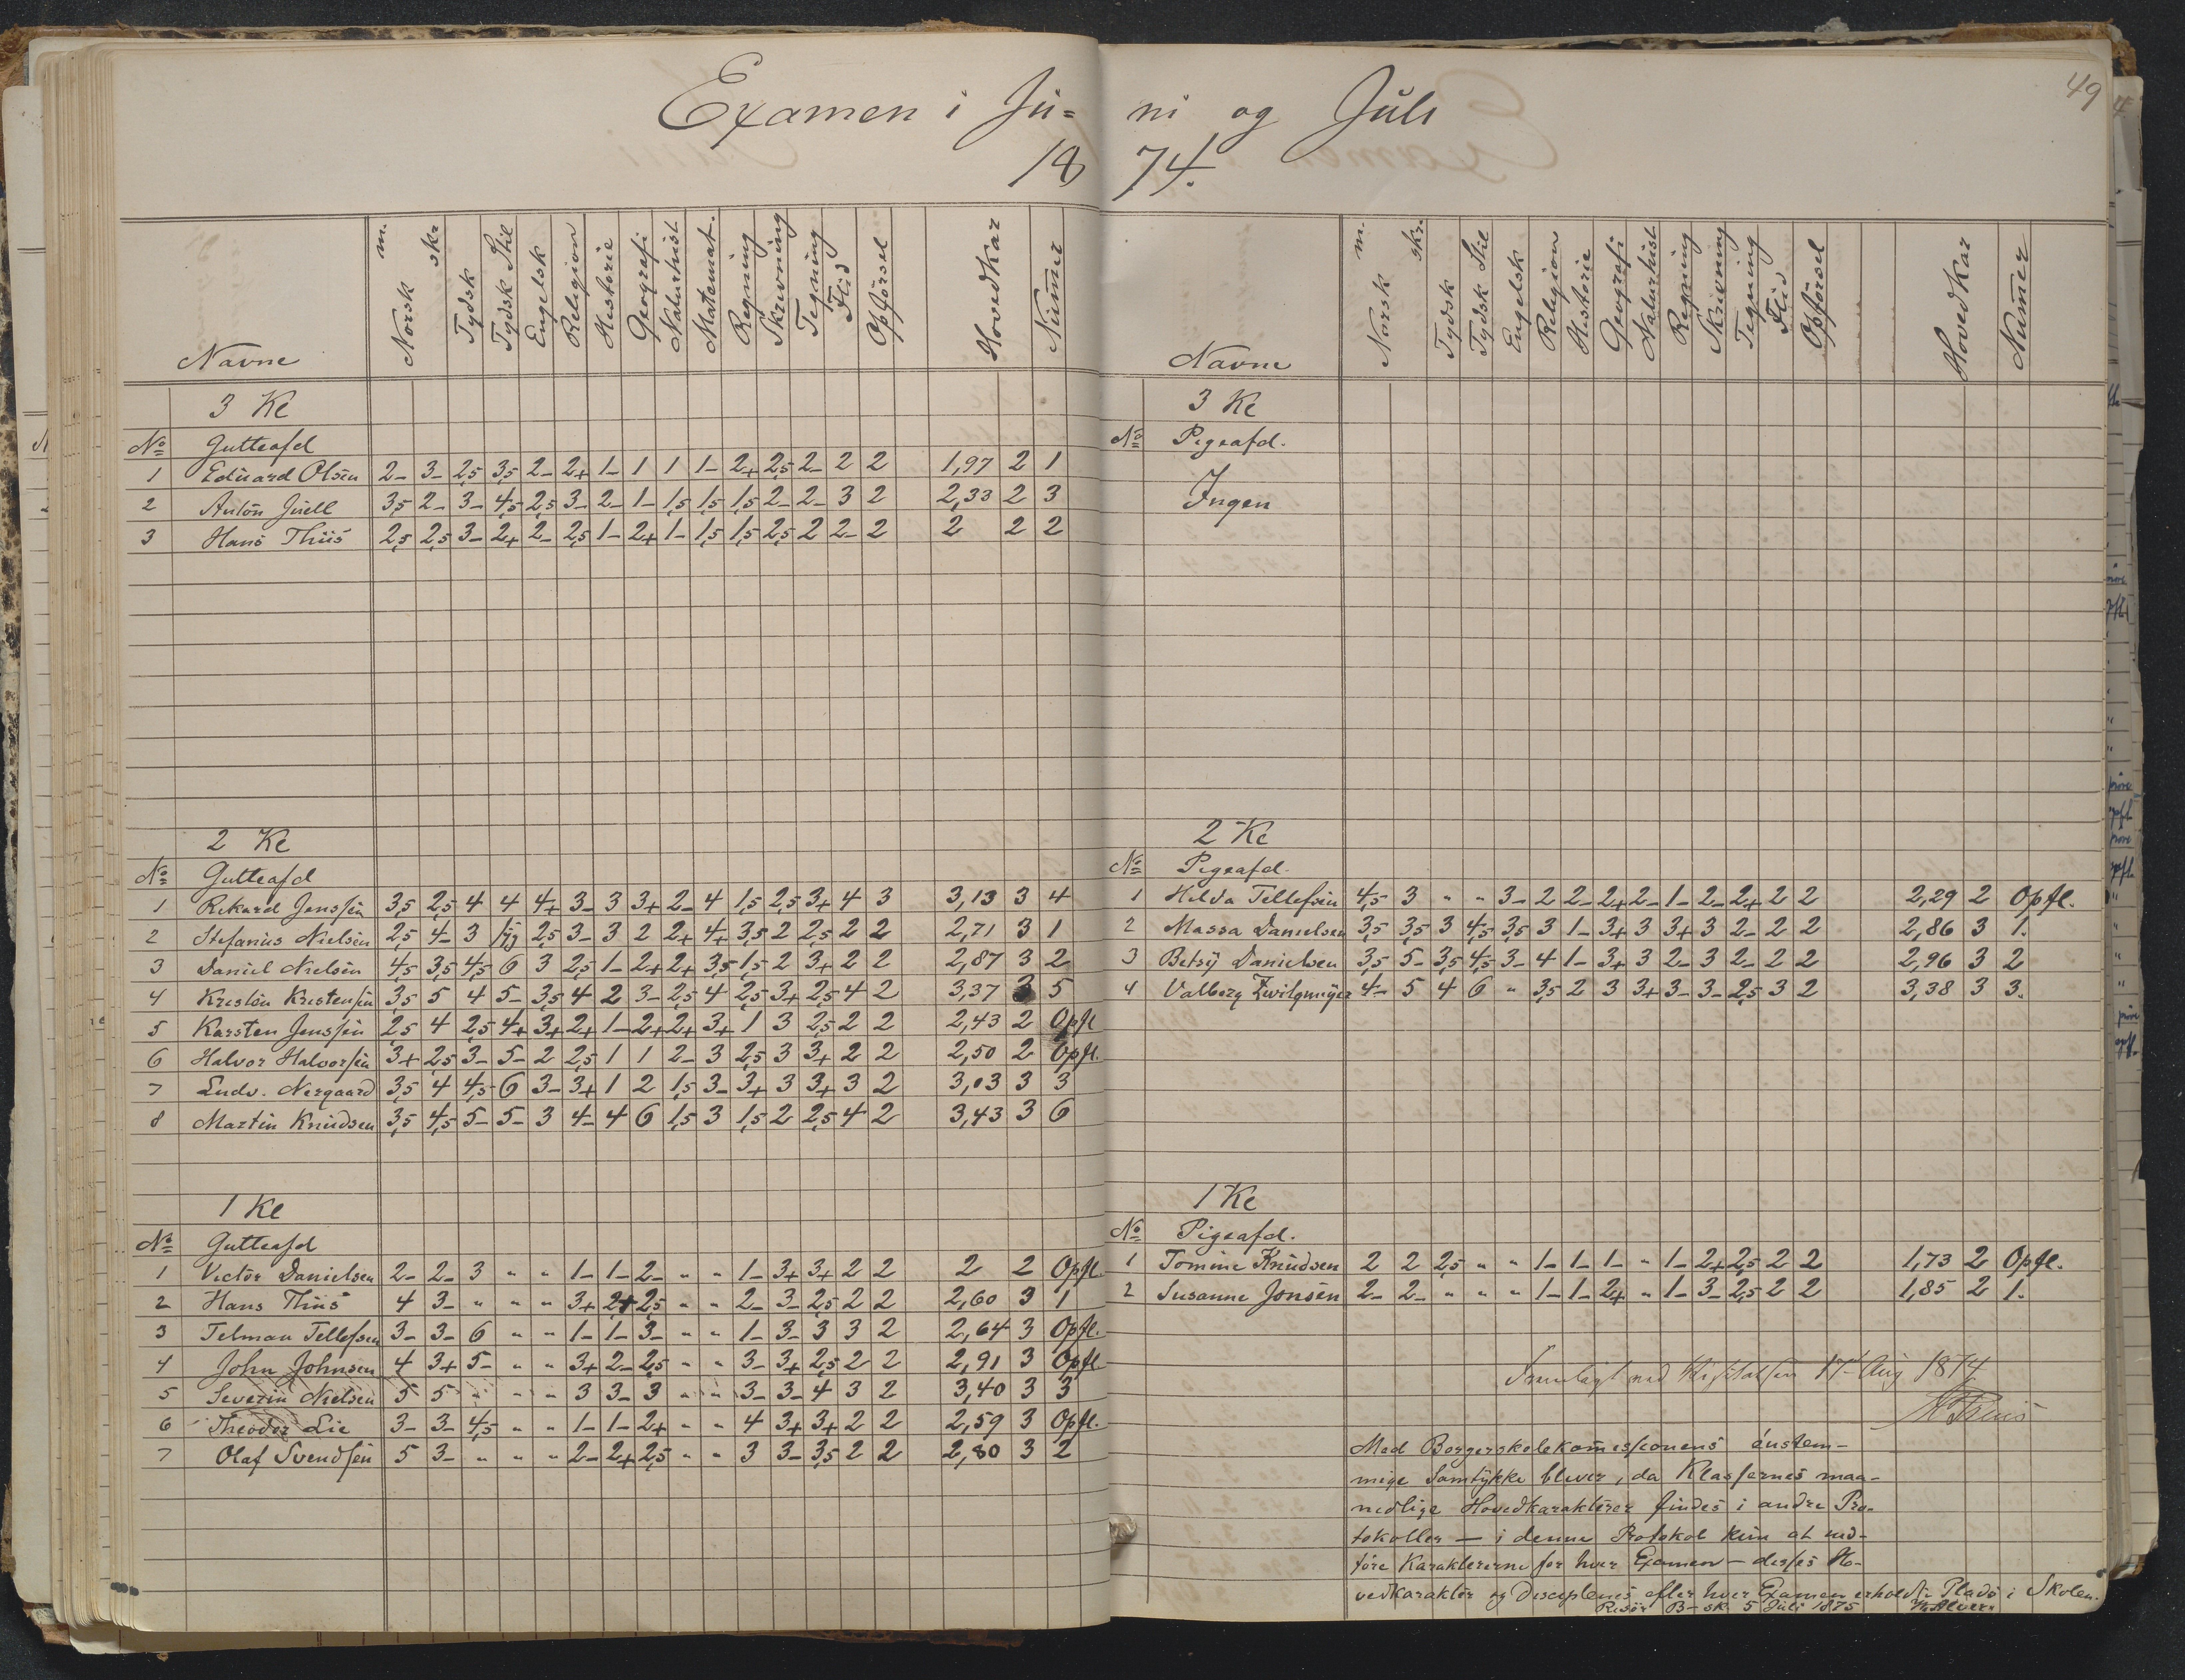 Examen i Ju=
18
Navne Norsk m. skr. Tydsk Tydsk Stil Engelsk Religion Historie Geografi Naturhist Matemat. Regning Skrivning Tegning Flid Opførsel Hovedkar Numer
3 Kl
No Gutteafd
1 Eduard Olsen 2- 3- 2,5 3,5 2- 2+ 1- 1 1 1- 2+ 2,5 2- 2 2 1,97 2 1
2 Anton Juell 3,5 2- 3- 4,5 2,5 3- 2- 1- 1,5 1,5 1,5 2- 2- 3 2 2,33 2 3
3 Hans Thiis 2,5 2,5 3- 2+ 2- 2,5 1- 2+ 1- 1,5 1,5 2,5 2 2- 2 2 2 2
2 Kl
No Gutteafd
1 Rikard Jenssen 3,5 2,5 4 4 4+ 3- 3 3+ 2- 4 1,5 2,5 3+ 4 3 3,13 3 4
2 Stefanus Nielsen 2,5 4- 3 2,5 3- 3 2 2+ 4+ 3,5 2 2,5 2 2 2,71 3 1
3 Daniel Nielsen 4,5 3,5 4,5 6 3 2,5 1- 2+ 2+ 3,5 1,5 2 3+ 2 2 2,87 3 2
4 Kristen Kristensen 3,5 5 4 5- 3,5 4 2 3- 2,5 4 2,5 3+ 2,5 4 2 3,37 3 5
5 Karsten Jenssen 2,5 4 2,5 4+ 3+ 2+ 1- 2+ 2+ 3+ 1 3 2,5 2 2 2,43 2 Opfl
6 Halvor Halvorsen 3+ 2,5 3- 5- 2 2,5 1 1 2- 3 2,5 3 3+ 2 2 2,50 2 Opfl.
7 Ludv. Nergaard 3,5 4 4,5 6 3- 3+ 1 2 1,5 3- 3+ 3 3+ 3 2 3,03 3 3
8 Martin Knudsen 3,5 4,5 5- 5- 3 4- 4 6 1,5 3 1,5 2 2,5 4 2 3,43 3 6
1 Kl
No Gutteafd
1 Victor Danielsen 2- 2- 3 " " 1- 1- 2- " " 1- 3+ 3+ 2 2 2 2 Opfl.
2 Hans Thiis 4 3- " " " 3+ 2+ 2,5 " " 2- 3- 2,5 2 2 2,60 3 1
3 Telman Tellefsen 3- 3- 6 " " 1- 1- 3- " " 1- 3- 3 3 2 2,64 3 Opfl.
4 John Johnsen 4 3+ 5- " " 3+ 2- 2,5 " " 3- 3+ 2,5 2 2 2,91 3 Opfl
5 Severin Nielsen 5 5 " " " 3 3- 3 " " 3- 3- 4 3 2 3,40 3 3
6 Theodor Lie 3- 3- 4,5 " " 1- 1- 2+ " " 4 3+ 3+ 2 2 2,59 3 Opfl.
7 Olaf Svendsen 5 3- " " " 2- 2+ 2,5 " " 3 3- 3,5 2 2 2,80 3 2
49
ni og Juli
74.
Navne Norsk m. skr. Tydsk Tydsk Stil Engelsk Religion Historie Geografi Naturhist Regning Skrivning Tegning Flid Opførsel Hovedkar Numer
3 Kl
No Pigeafd.
Ingen
2 Kl
No Pigeafd.
1 Hilda Tellefsen 4,5 3 " " 3- 2 2- 2+ 2- 1- 2- 2+ 2 2 2,29 2 Opfl.
2 Massa Danielsen 3,5 3,5 3 4,5 3,5 3 1- 3+ 3 3+ 3 2- 2 2 2,86 3 1.
3 Betsy Danielsen 3,5 5- 3,5 4,5 3- 4 1- 3+ 3 2- 3 2- 2 2 2,96 3 2
4 Valborg Zwilgmeyer 4- 5 4 6 " 3,5 2 3 3+ 3- 3- 2,5 3 2 3,38 3 3.
1 Kl
No Pigeafd.
1 Tomine Knudsen 2 2 2,5 " " 1- 1- 1- " 1- 2+ 2,5 2 2 1,73 2 Opfl.
2 Susanne Jonsen 2- 2- " " " 1- 1- 2+ " 1- 3- 2,5 2 2 1,85 2 1.
Fremlagt ved Visitatsen 17de Aug 1874
Med Borgerskolekomissionens énstem-
mige Samtykke bliver, da Klassernes maa-
nedlige Hovedkarakterer findes i andre Pro-
tokoller – i denne Protokol kun at ind-
føre Karaktererne for hver Examen – disses Ho-
vedkarakter og Disciplenes efter hver Examen erholdte Plads i Skolen.
Risør B-sk. 5 Juli 1875